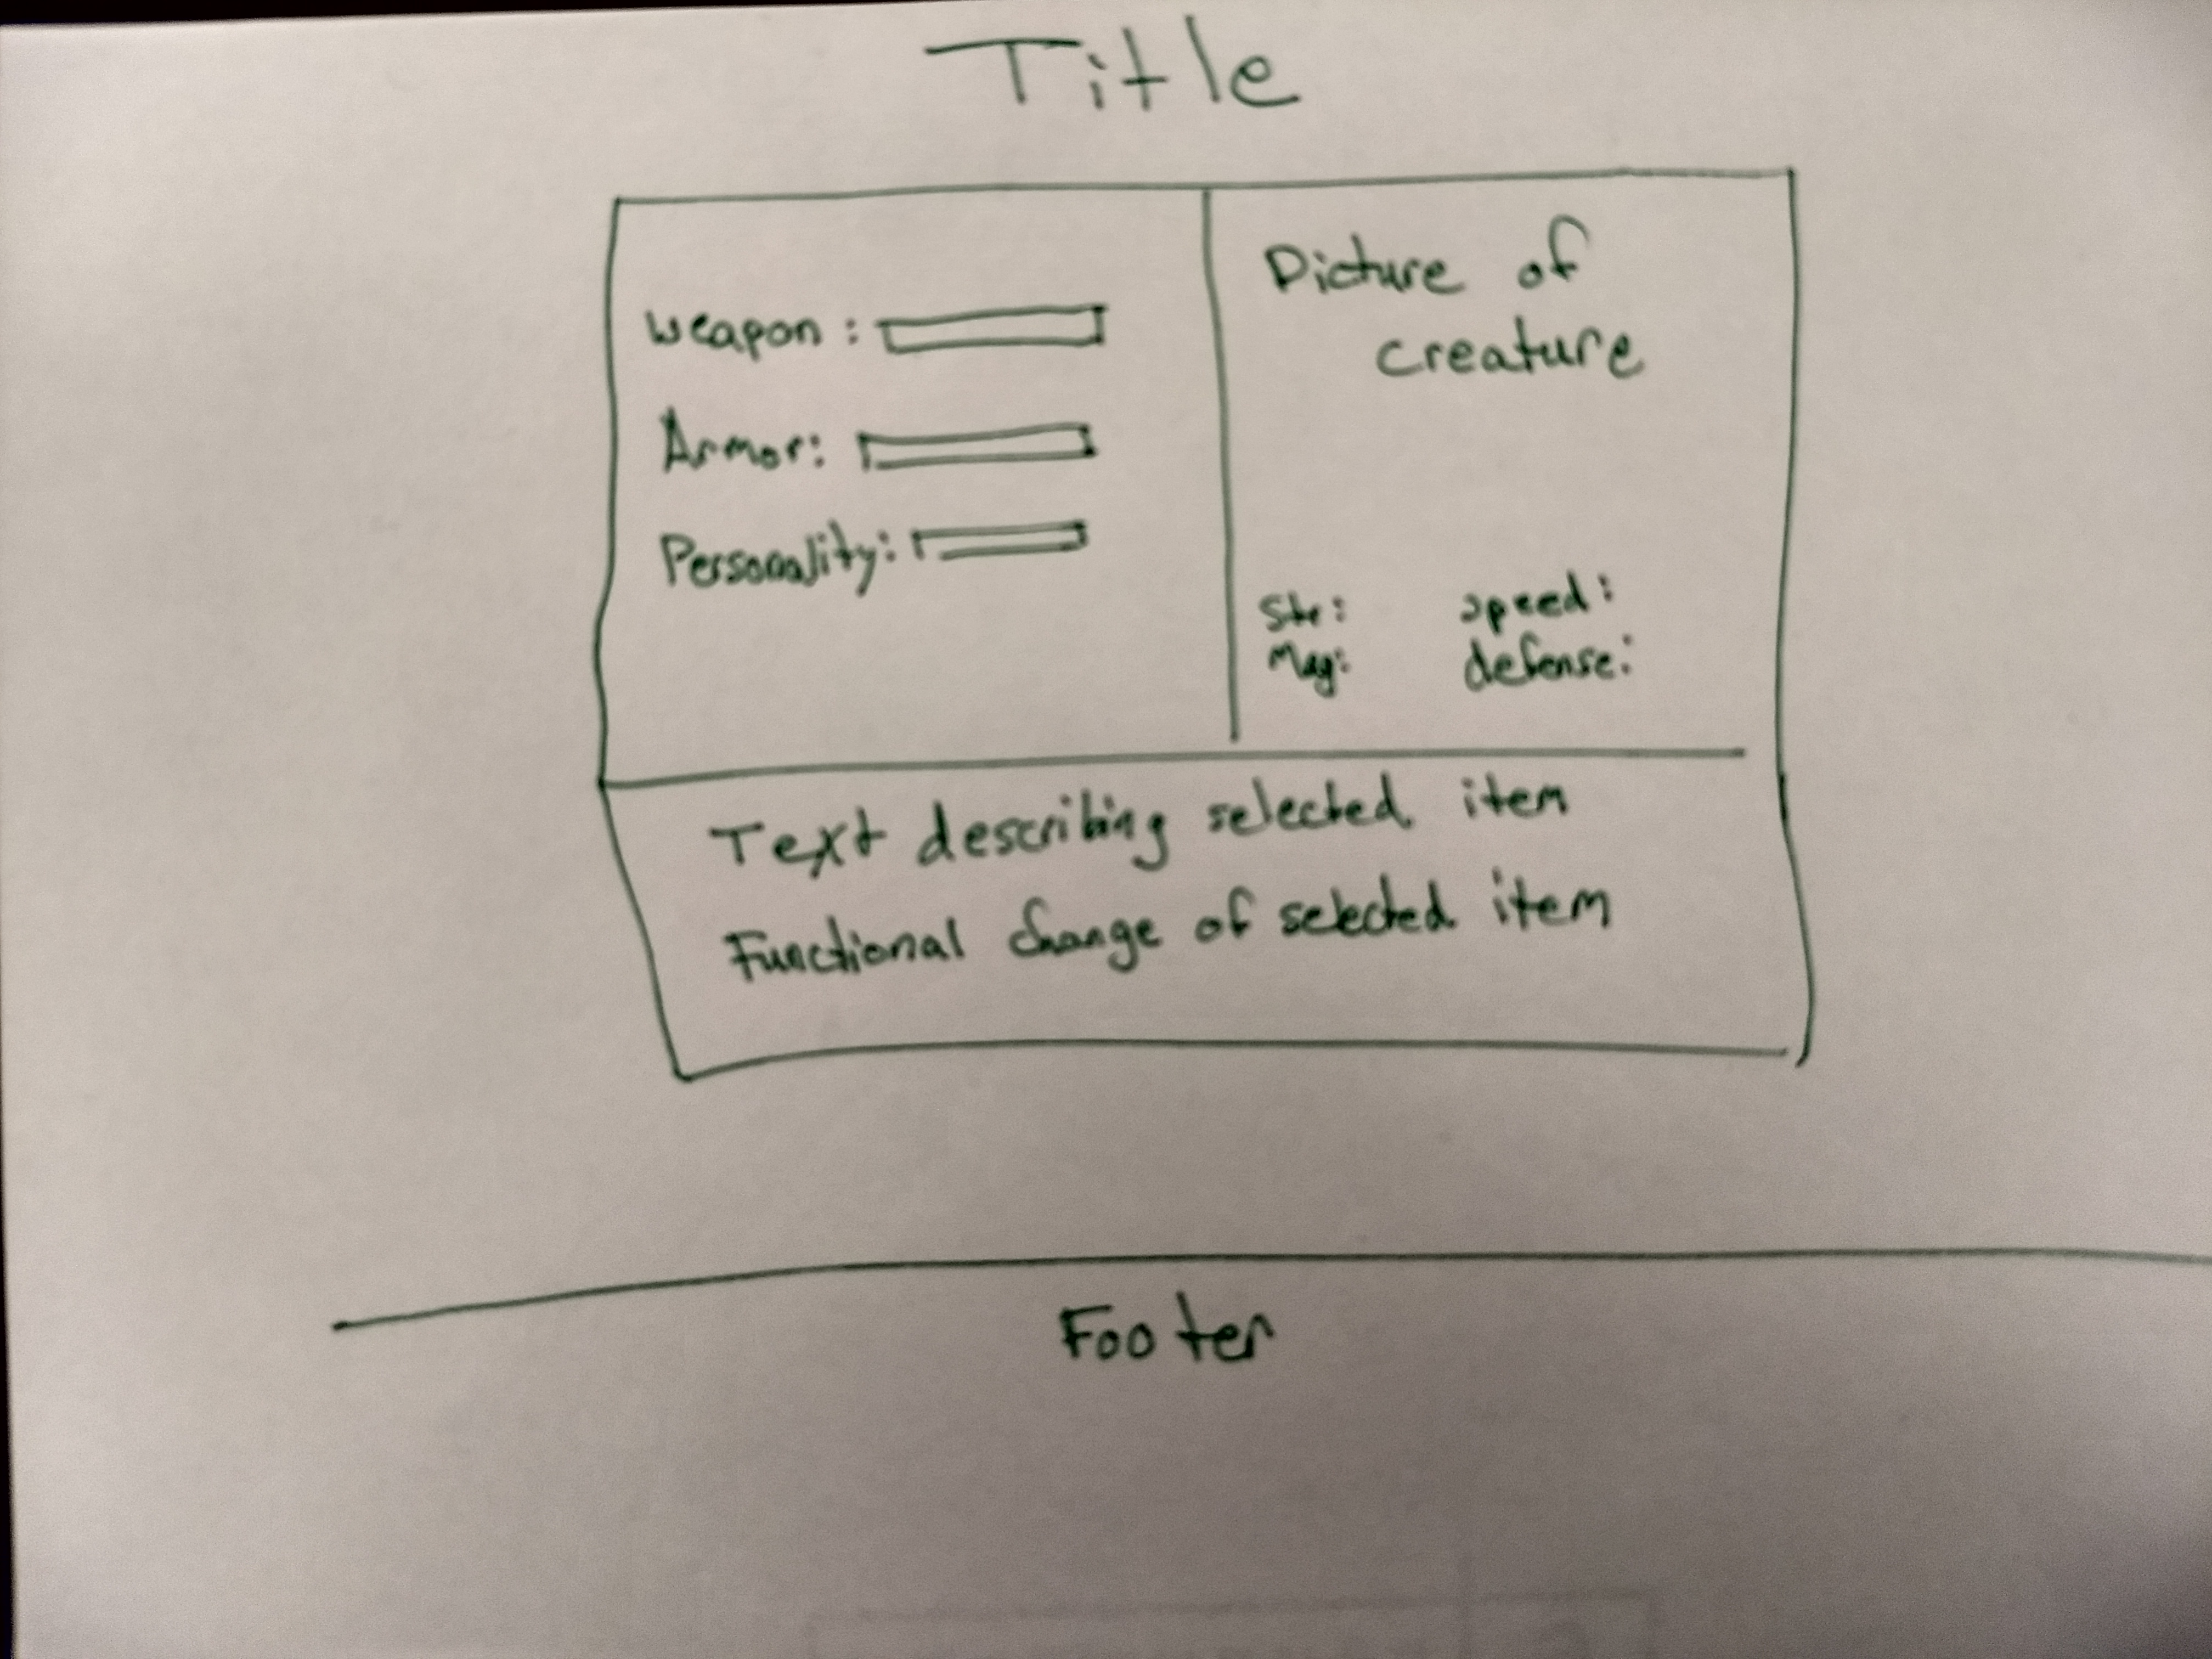 Title
Weapon :
Armor:
Personality:
Picture of
creature
Str: speed:
Mag: defense:
Text describing selected item
Functional change of selected item
Footer